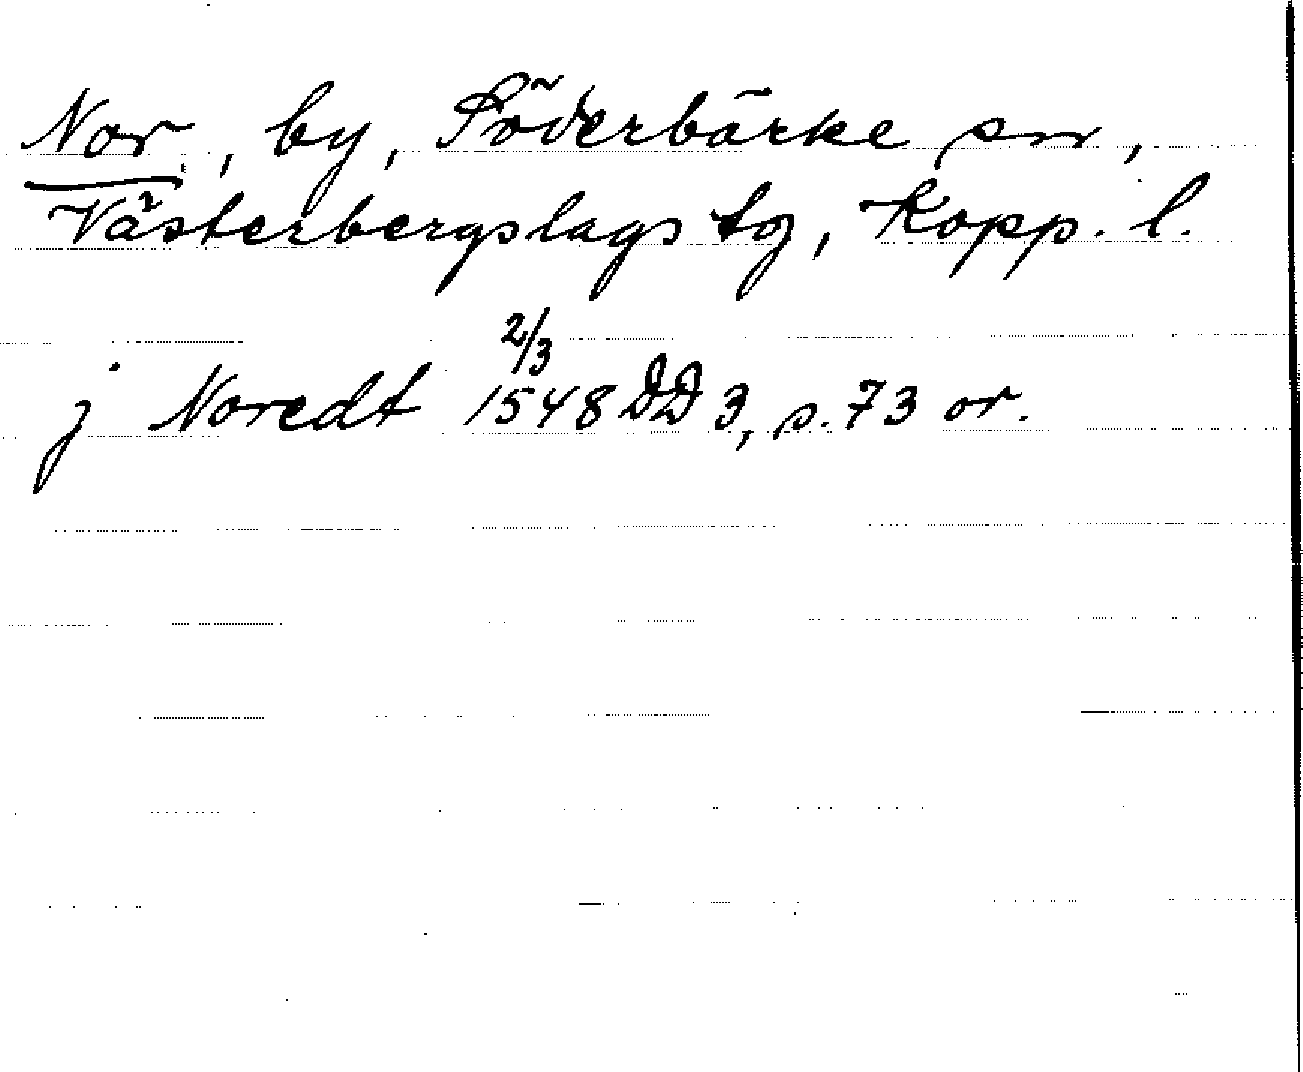 Nor, by, Söderbärke sn,
Västerbergslags tg, Kopp. l.
j Noredt 2/3 1548 DD 3, s. 73 or.